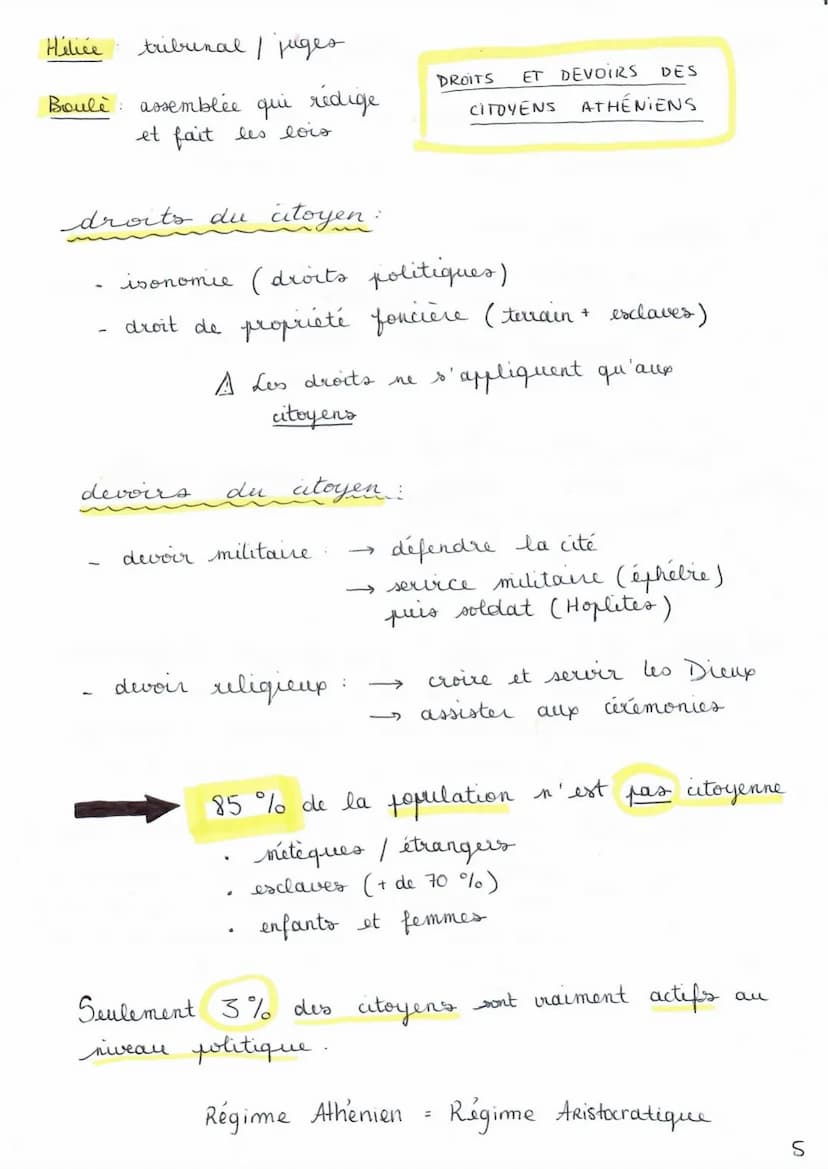 Héliée : tribunal / juges
Boulè : assemblée qui rédige
et fait les lois
DROITS ET DEVOIRS DES
CITOYENS ATHÉNIENS
droits du citoyen :
- isonomie (droits politiques)
- droit de propriété foncière (terrain + esclaves)
⚠ Les droits ne s'appliquent qu'aux
citoyens
devoirs du citoyen :
- devoir militaire : → défendre la cité
→ service militaire (éphébie)
puis soldat (Hoplites)
- devoir religieux : → croire et servir les Dieux
→ assister aux cérémonies
85 % de la population n'est pas citoyenne
• métèques / étrangers
• esclaves (+ de 70 %)
• enfants et femmes
Seulement 3 % des citoyens sont vraiment actifs au
niveau politique.
Régime Athénien = Régime Aristocratique
5